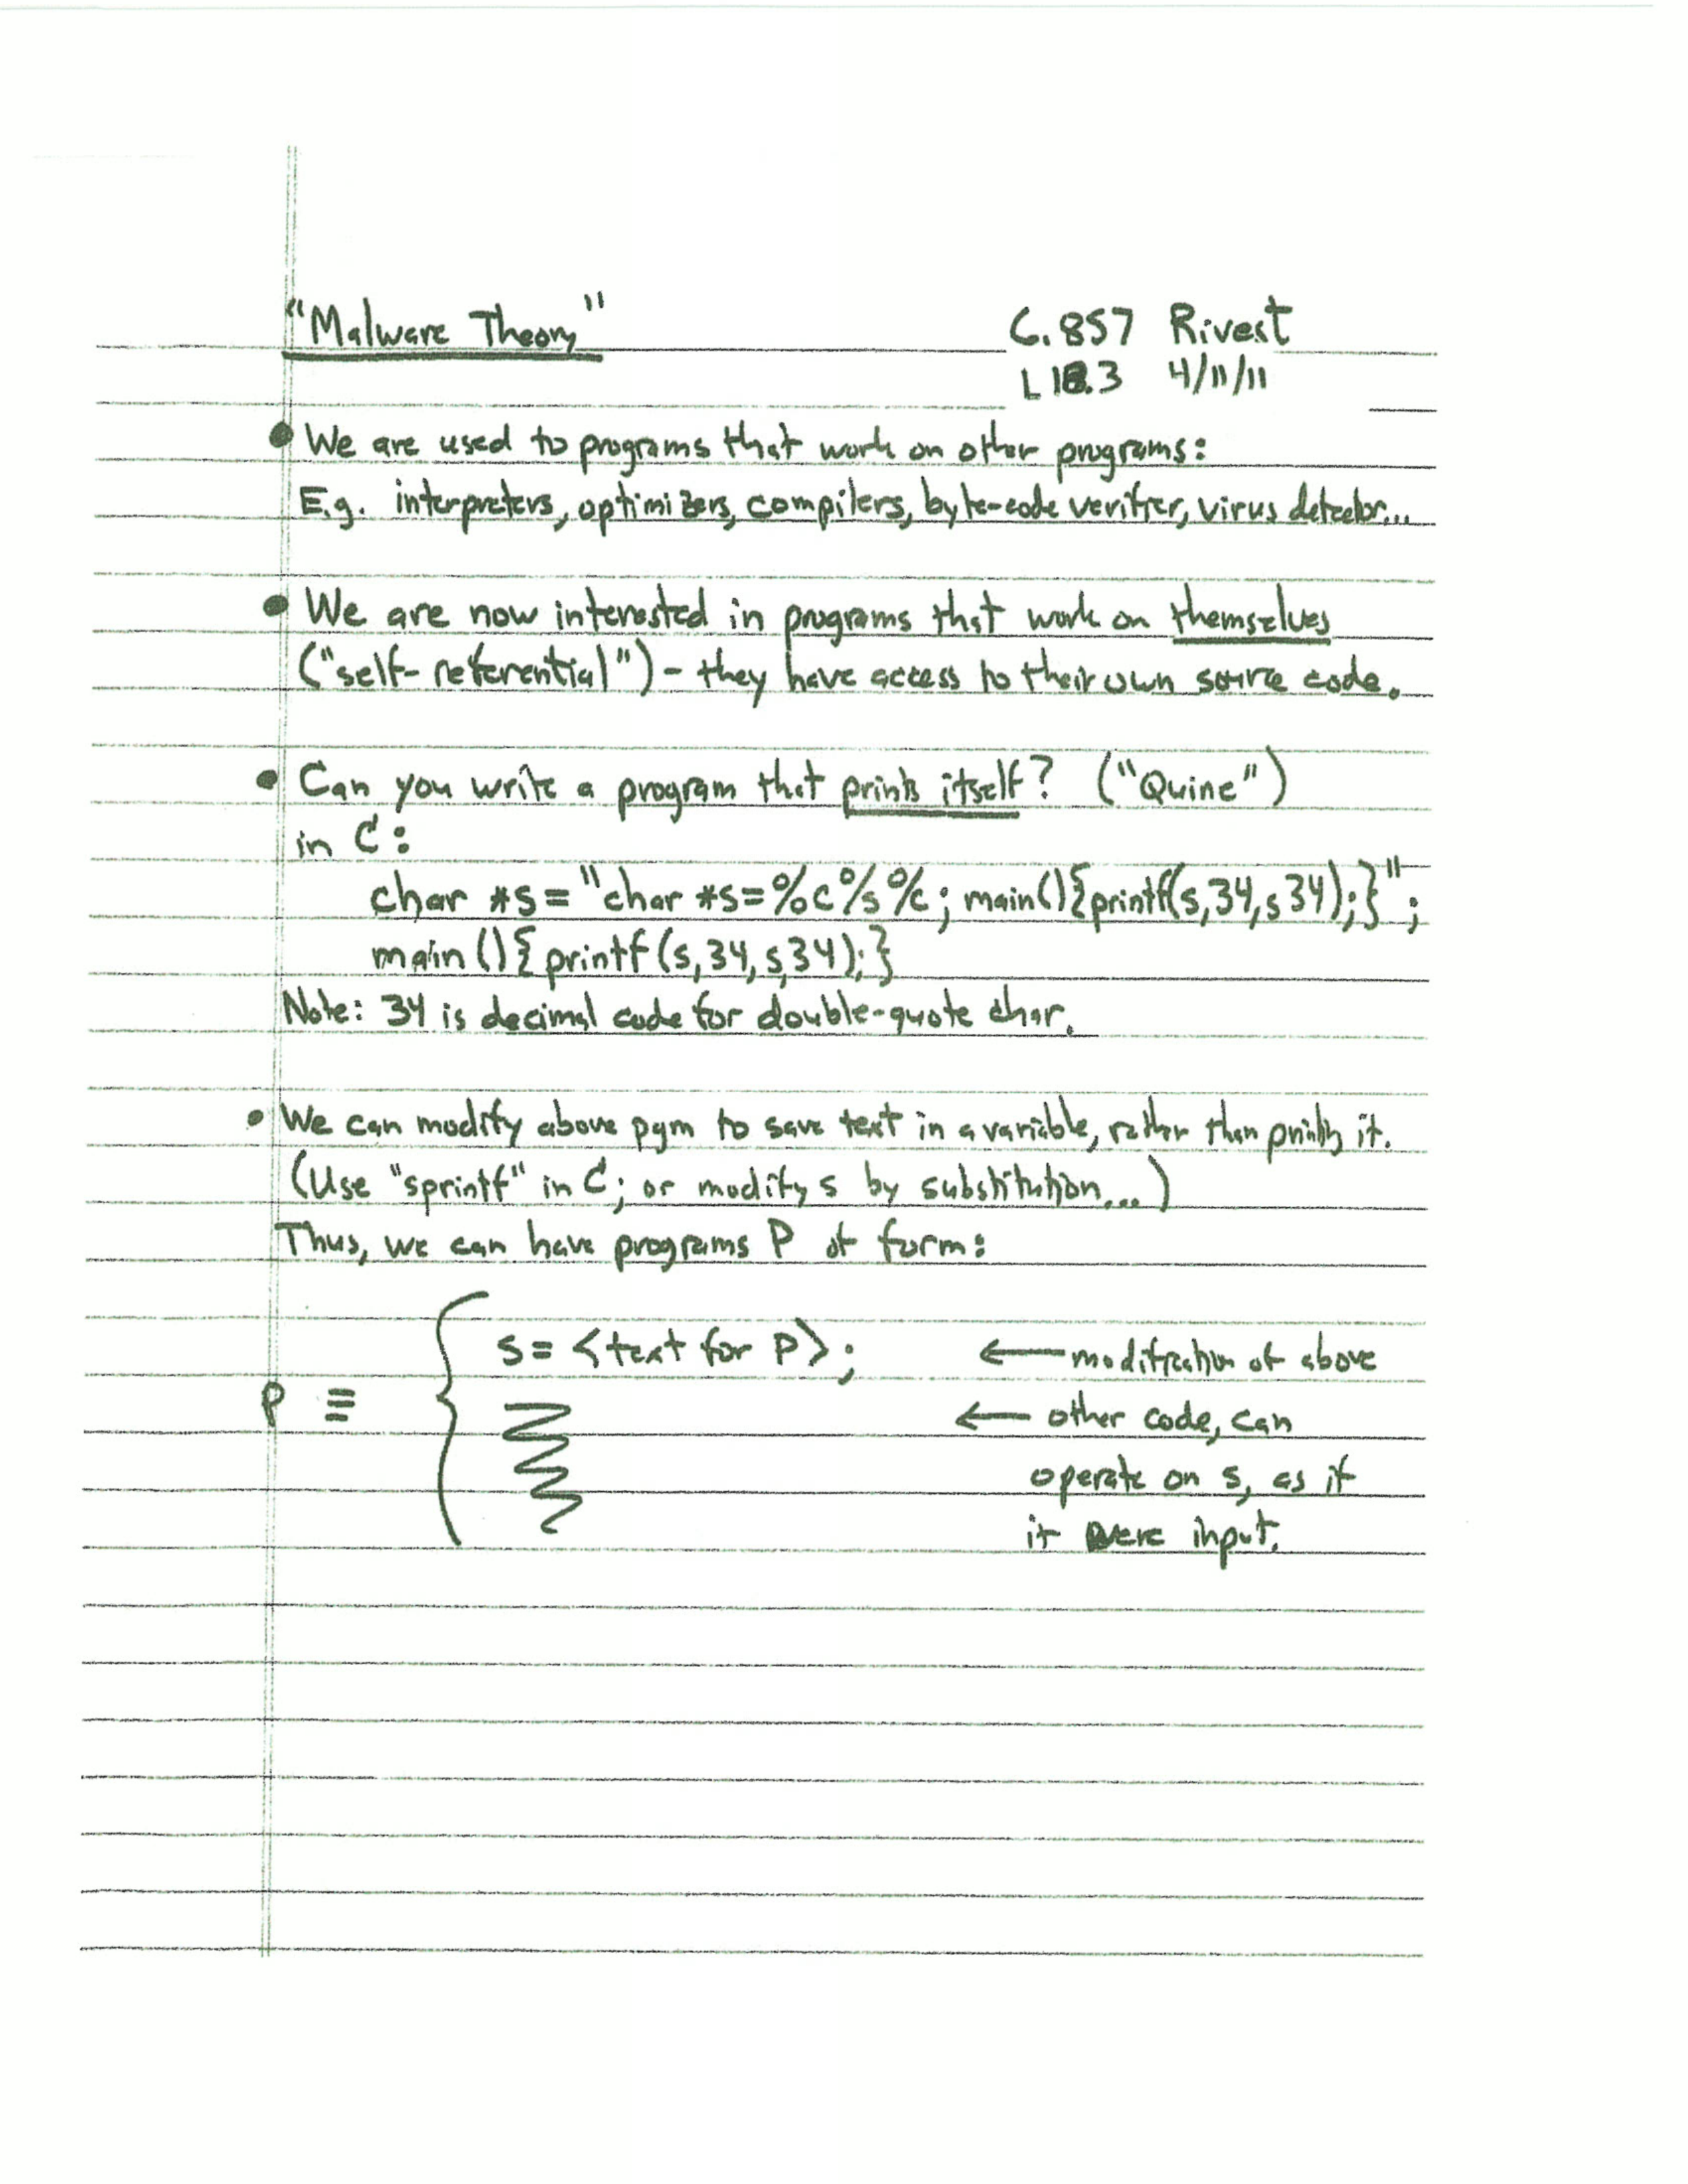 "Malware Theory"
6.857 Rivest
L18.3 4/11/11
• We are used to programs that work on other programs:
E.g. interpreters, optimizers, compilers, byte-code verifier, virus detector...
• We are now interested in programs that work on themselves
("self-referential") - they have access to their own source code.
• Can you write a program that prints itself? ("Quine")
in C:
char *s="char *s=%c%s%c; main(){printf(s,34,s 34);}";
main(){printf(s,34,s,34);}
Note: 34 is decimal code for double-quote char.
• We can modify above pgm to save text in a variable, rather than printing it.
(Use "sprintf" in C; or modify s by substitution...)
Thus, we can have programs P of form:
s = <text for P>; ← modification of above
P ≡
← other code, can
operate on s, as if
it were input.